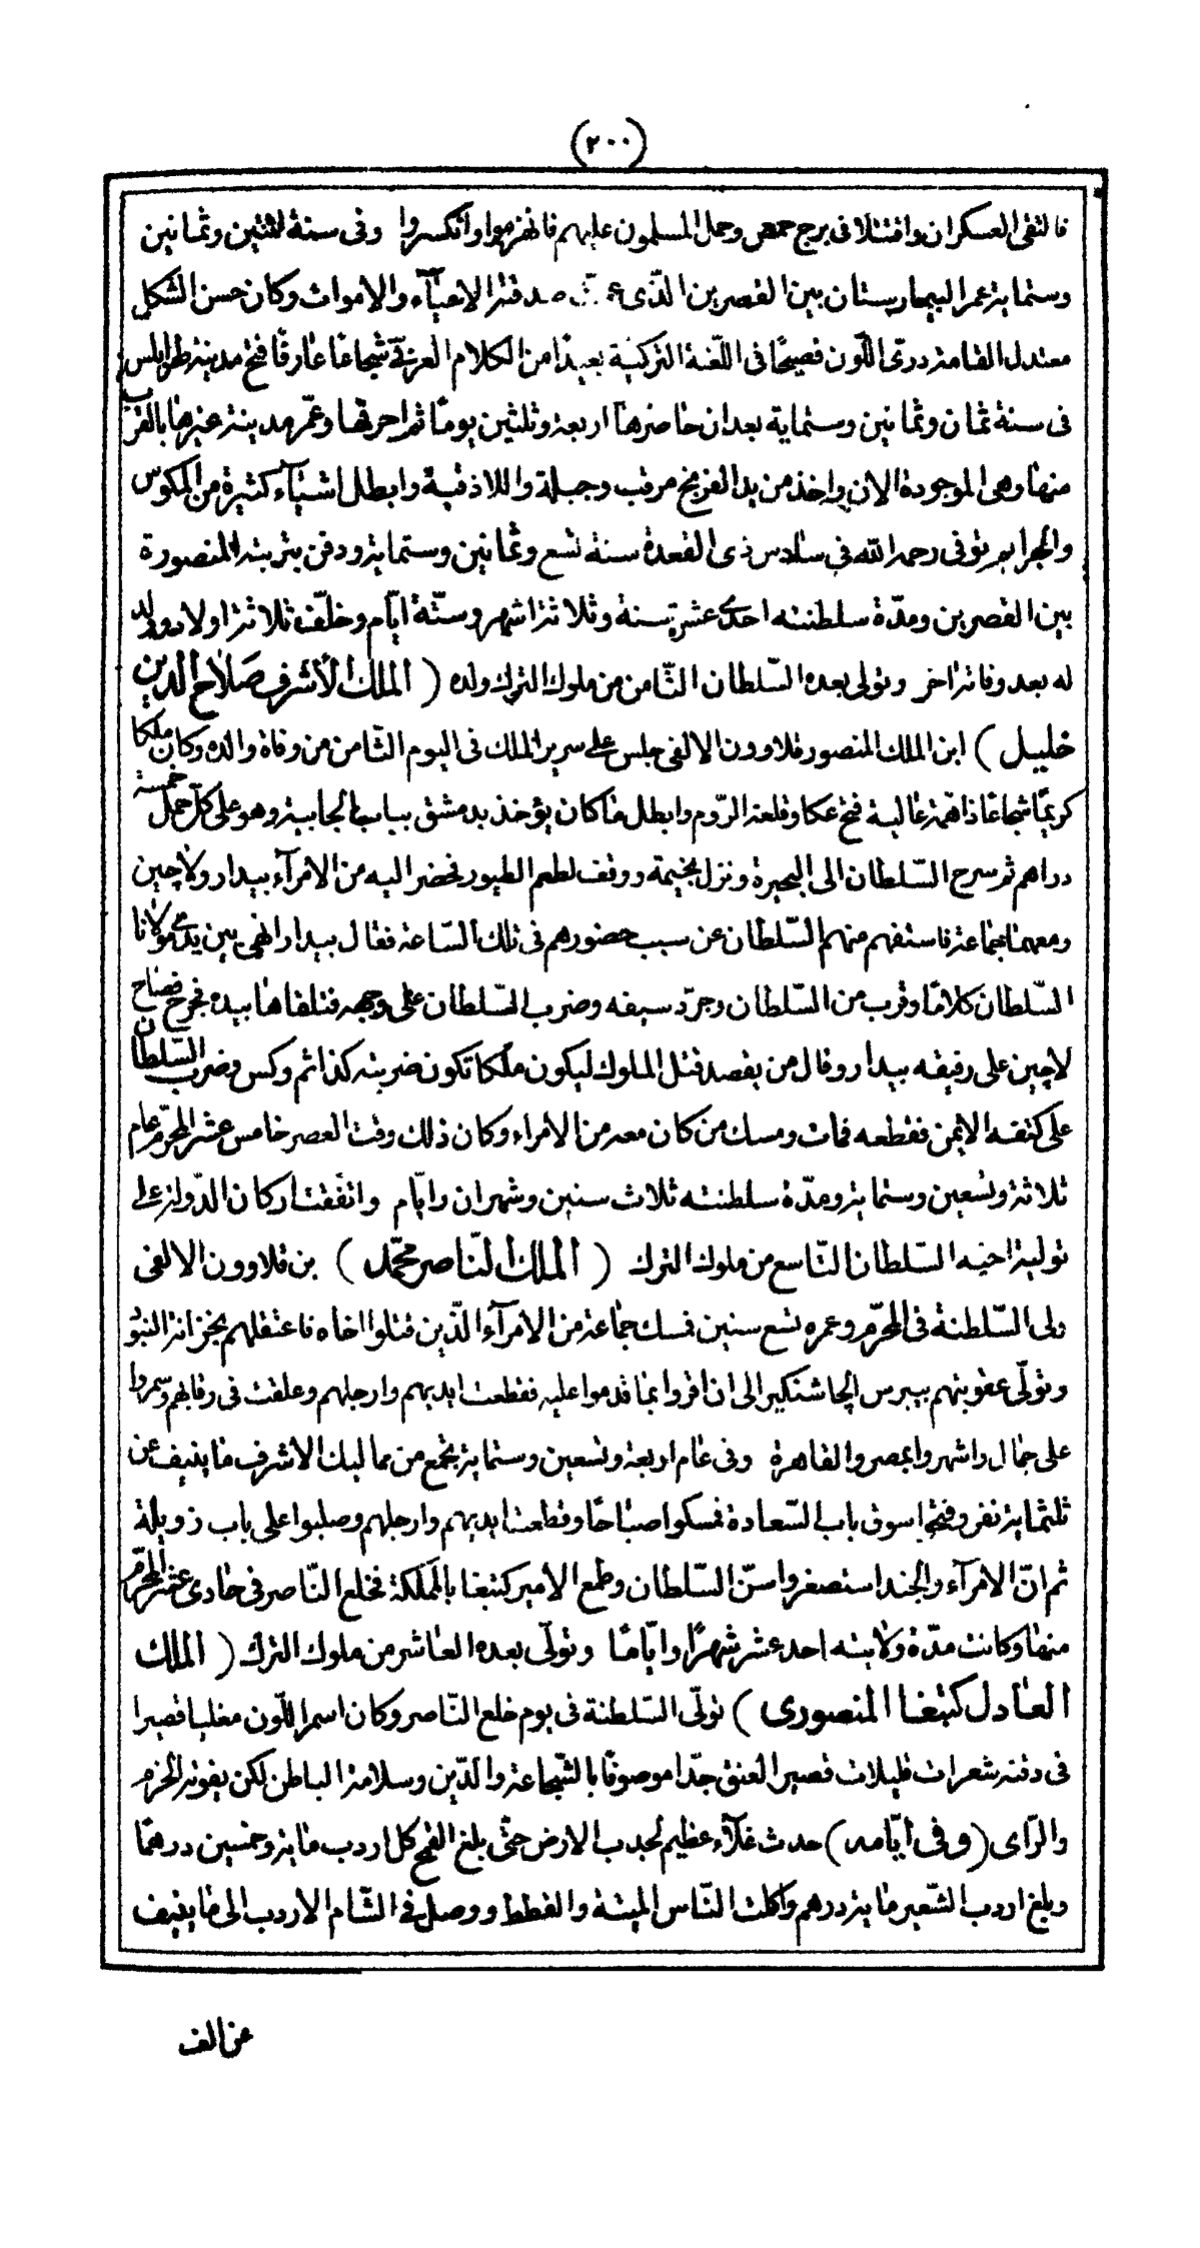 (٢٠٠)
فالتقى العسكران واقتتلا فى برج حمص وحمل المسلمون عليهم فانهزموا وانكسروا وفى سنة اثنتين وثمانين
وستماية عمر البيمارستان بين القصرين الذى صدقته الاحيآء والاموات وكان حسن الشكل
معتدل القامة درى اللّون فصيحًا فى اللّغة التركية بعيدًا من الكلام العربىّ شجاعًا عارفًا فتح مدينة طرابلس
فى سنة ثمان وثمانين وستماية بعد ان حاصرها اربعة وثلثين يومًا ثم احرقها وعمّر مدينة غيرها بالقرب
منها وهى الموجودة الان واخذ من يد الفرنج مرقب وجبلة واللاذقية وابطل اشيآء كثيرة من المكوس
والجرايم توفى رحمه الله فى سادس ذى القعدة سنة تسع وثمانين وستماية ودفن بتربته المنصورة
بين القصرين ومدّة سلطنته احدى عشرة سنة وثلاثة اشهر وستّة ايّام وخلّف ثلاثة اولاد وولد
له بعد وفاته اخر وتولى بعده السّلطان الثّامن من ملوك الترك ولده ( الملك الأشرف صلاح الدين
خليل ) ابن الملك المنصور قلاوون الالفى جلس على سرير الملك فى اليوم الثّامن من وفاة والده وكان ملكا
كريمًا شجاعًا ذا همّة عالية فتح عكا وقلعة الرّوم وابطل ما كان يؤخذ بدمشق بباب الجابية وهو على كلّ حمل خمسة
دراهم ثم سرح السّلطان الى البحيرة ونزل بخيمة ووقف لطعم الطيور فحضر اليه من الامرآء بيدار ولاچين
ومعهما جماعة فاستفهم منهم السّلطان عن سبب حضورهم فى تلك السّاعة فقال بيدار انهى بين يدى مولانا
السّلطان كلامًا وقرب من السّلطان وجرّد سيفه وضرب السّلطان على وجهه فتلقاها بيده فجرح فصاح
لاچين على رفيقه بيدار وقال من يقصد قتل الملوك ليكون ملكا تكون ضربته كذا ثم وكس وضرب السّلطان
على كتفه الايمن فقطعه فمات ومسك من كان معه من الامراء وكان ذلك وقت العصر خامس عشر المحرّم عام
ثلاثة وتسعين وستماية ومدّة سلطنته ثلاث سنين وشهران وايّام واتفقت اركان الدّولة على
تولية اخيه السّلطان التّاسع من ملوك الترك ( الملك النّاصر محمّد ) بن قلاوون الالفى
ولى السّلطنة فى المحرّم وعمره تسع سنين فمسك جماعة من الامرآء الّذين قتلوا اخاه فاعتقلهم بخزانة البنود
وتولّى عقوبتهم بيبرس الچاشنكير الى ان اقروا بما قدموا عليه فقطعت ايديهم وارجلهم وعلقت فى رقابهم وسمروا
على جمال واشهروا بمصر والقاهرة وفى عام اربعة وتسعين وستماية تجمع من مماليك الاشرف ما ينيف عن
ثلثماية نفر وفتحوا سوق باب السّعادة فمسكوا صباحًا وقطعت ايديهم وارجلهم وصلبوا على باب زويلة
ثم انّ الامرآء والجند استصغروا سنّ السّلطان وطمع الامير كتبغا بالمملكة فخلع النّاصر فى حادى عشر المحرّم
منها وكانت مدّة ولايته احد عشر شهرًا وايّامًا وتولّى بعده العاشر من ملوك الترك ( الملك
العادل كتبغا المنصورى ) تولّى السّلطنة فى يوم خلع النّاصر وكان اسمر اللّون مغليا قصيرا
فى دقنه شعرات قليلات قصير العنق جدّا موصوفًا بالشّجاعة والدّين وسلامة الباطن لكن يفوته الحزم
والرّاى ( وفى ايّامه ) حدث غلآء عظيم لجدب الارض حتّى بلغ القمح كل اردب ماية وخمسين درهمًا
وبلغ اردب الشّعير ماية درهم واكلت النّاس الميتة والقطط ووصل فى الشّام الاردب الى ما ينيف
عن الف